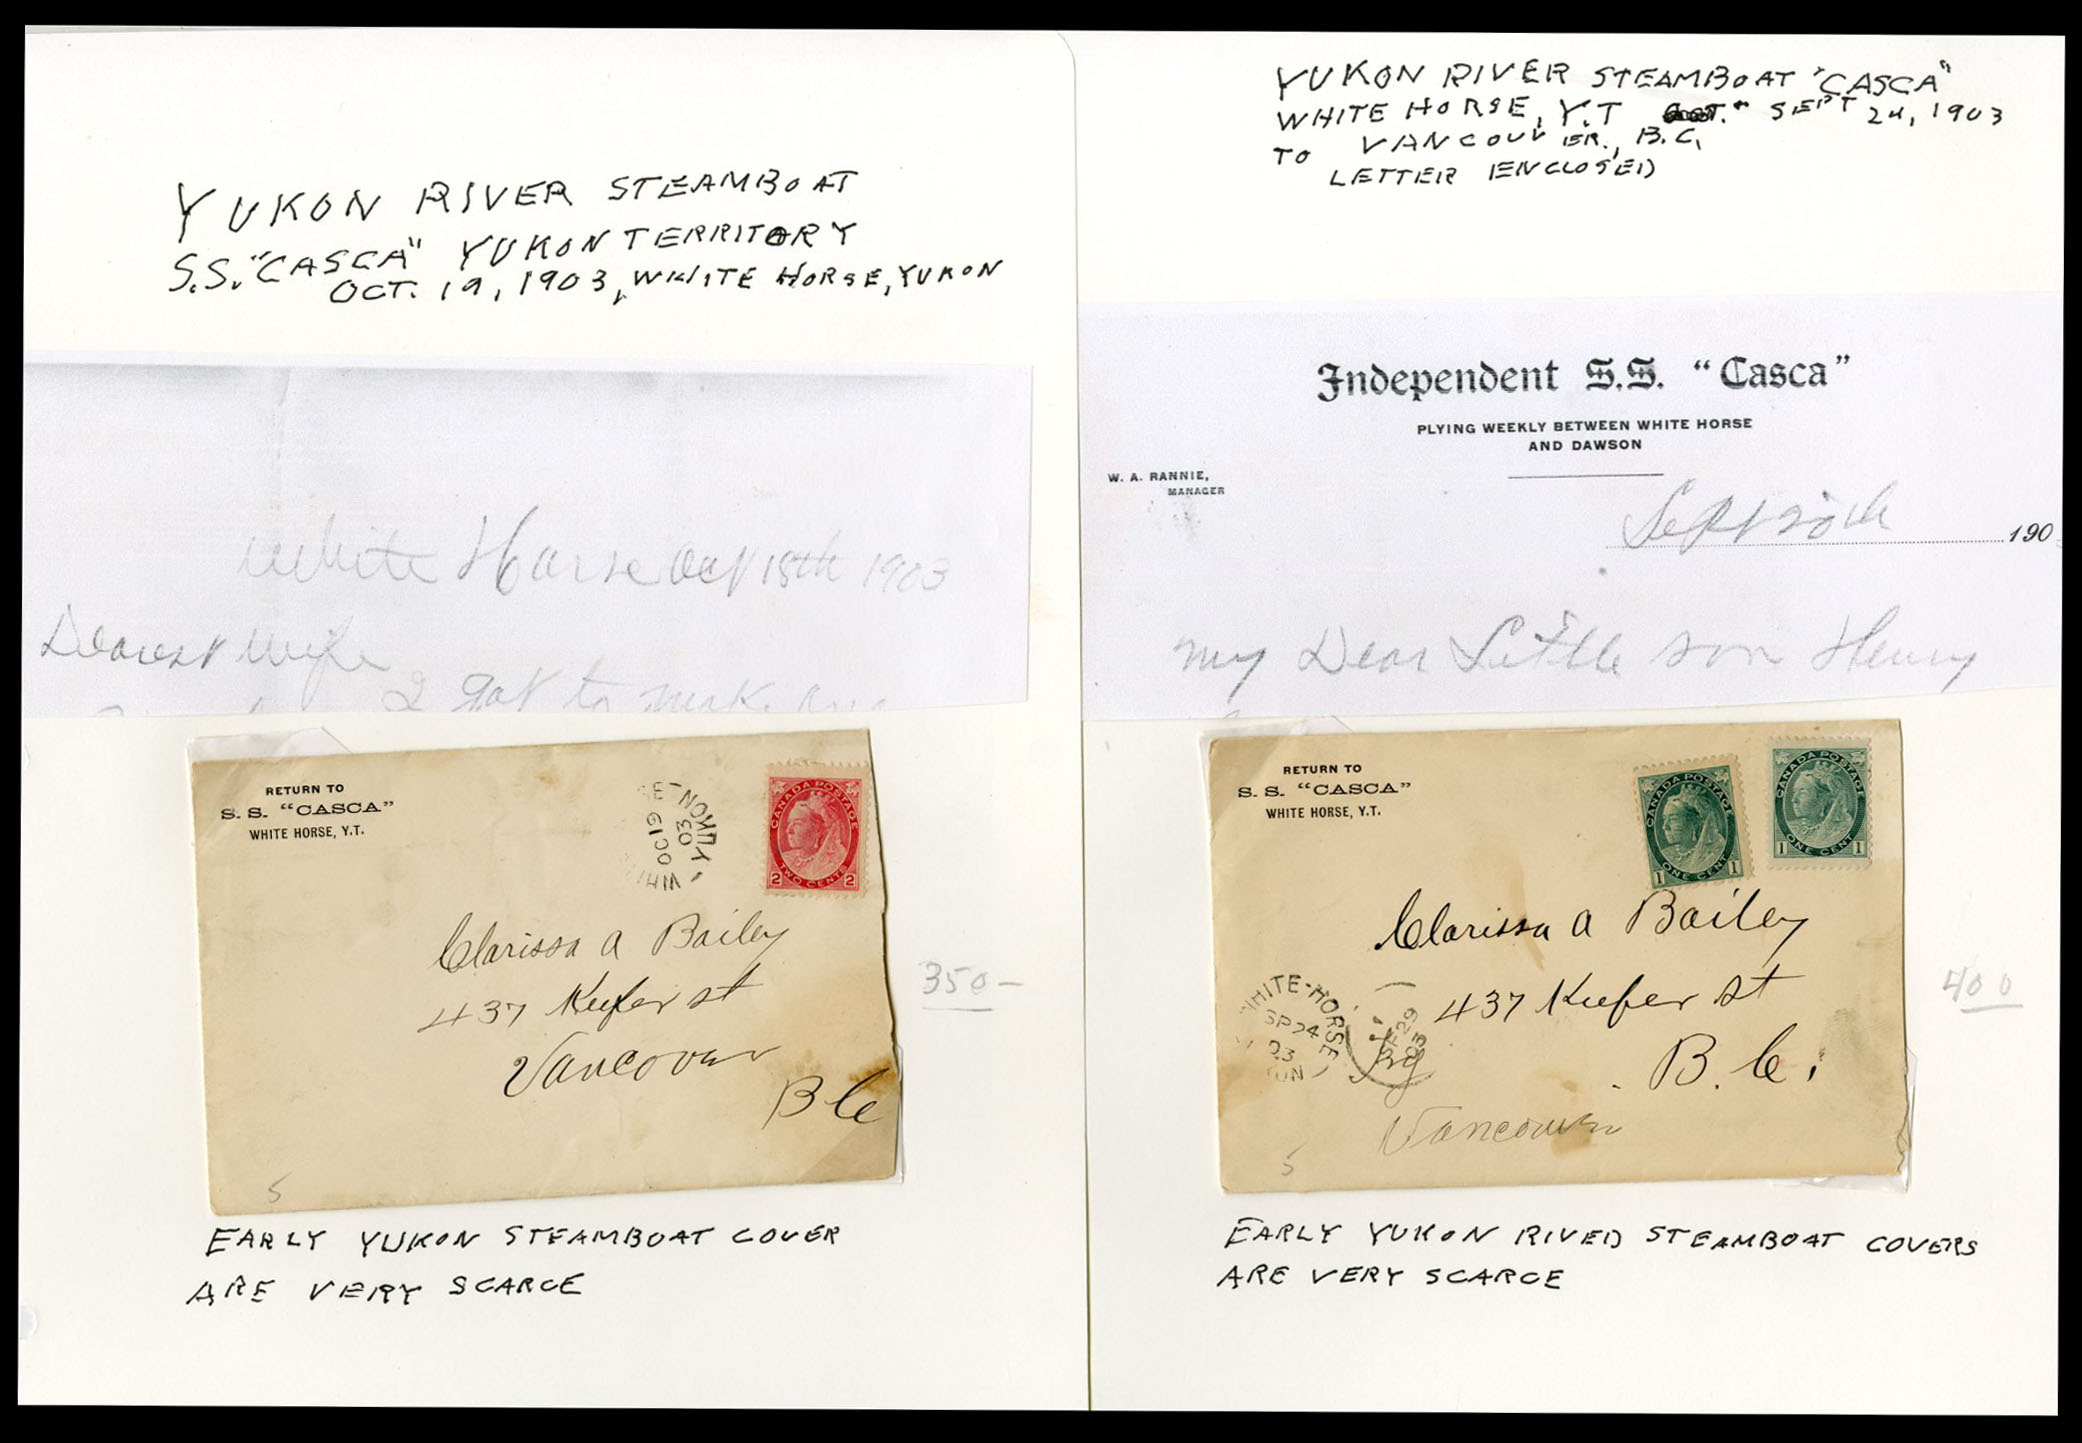 YUKON RIVER STEAMBOAT
S.S. "CASCA" YUKON TERRITORY
OCT. 19, 1903, WHITE HORSE, YUKON
White Horse Oct 18th 1903
Dearest wife
I got to
RETURN TO
S. S. "CASCA"
WHITE HORSE, Y.T.
OC 19
03
YUKON
CANADA POSTAGE
2 2
TWO CENTS
Clarissa A Bailey
437 Keefer st
Vancover
B C
5
350-
EARLY YUKON STEAMBOAT COVER
ARE VERY SCARCE
YUKON RIVER STEAMBOAT "CASCA"
WHITE HORSE, Y.T SEPT 24, 1903
TO VANCOUVER., B.C,
LETTER ENCLOSED
Independent S.S. "Casca"
PLYING WEEKLY BETWEEN WHITE HORSE
AND DAWSON
W. A. RANNIE,
MANAGER
Sept 20th 190
My Dear Little son Henry
RETURN TO
S. S. "CASCA"
WHITE HORSE, Y.T.
CANADA POSTAGE
1 1
ONE CENT
CANADA POSTAGE
1 1
ONE CENT
Clarissa A Bailey
437 Keefer st
B. C.
Vancouver
WHITE-HORSE
SP 24
03
SP 29
03
5
400
EARLY YUKON RIVER STEAMBOAT COVERS
ARE VERY SCARCE